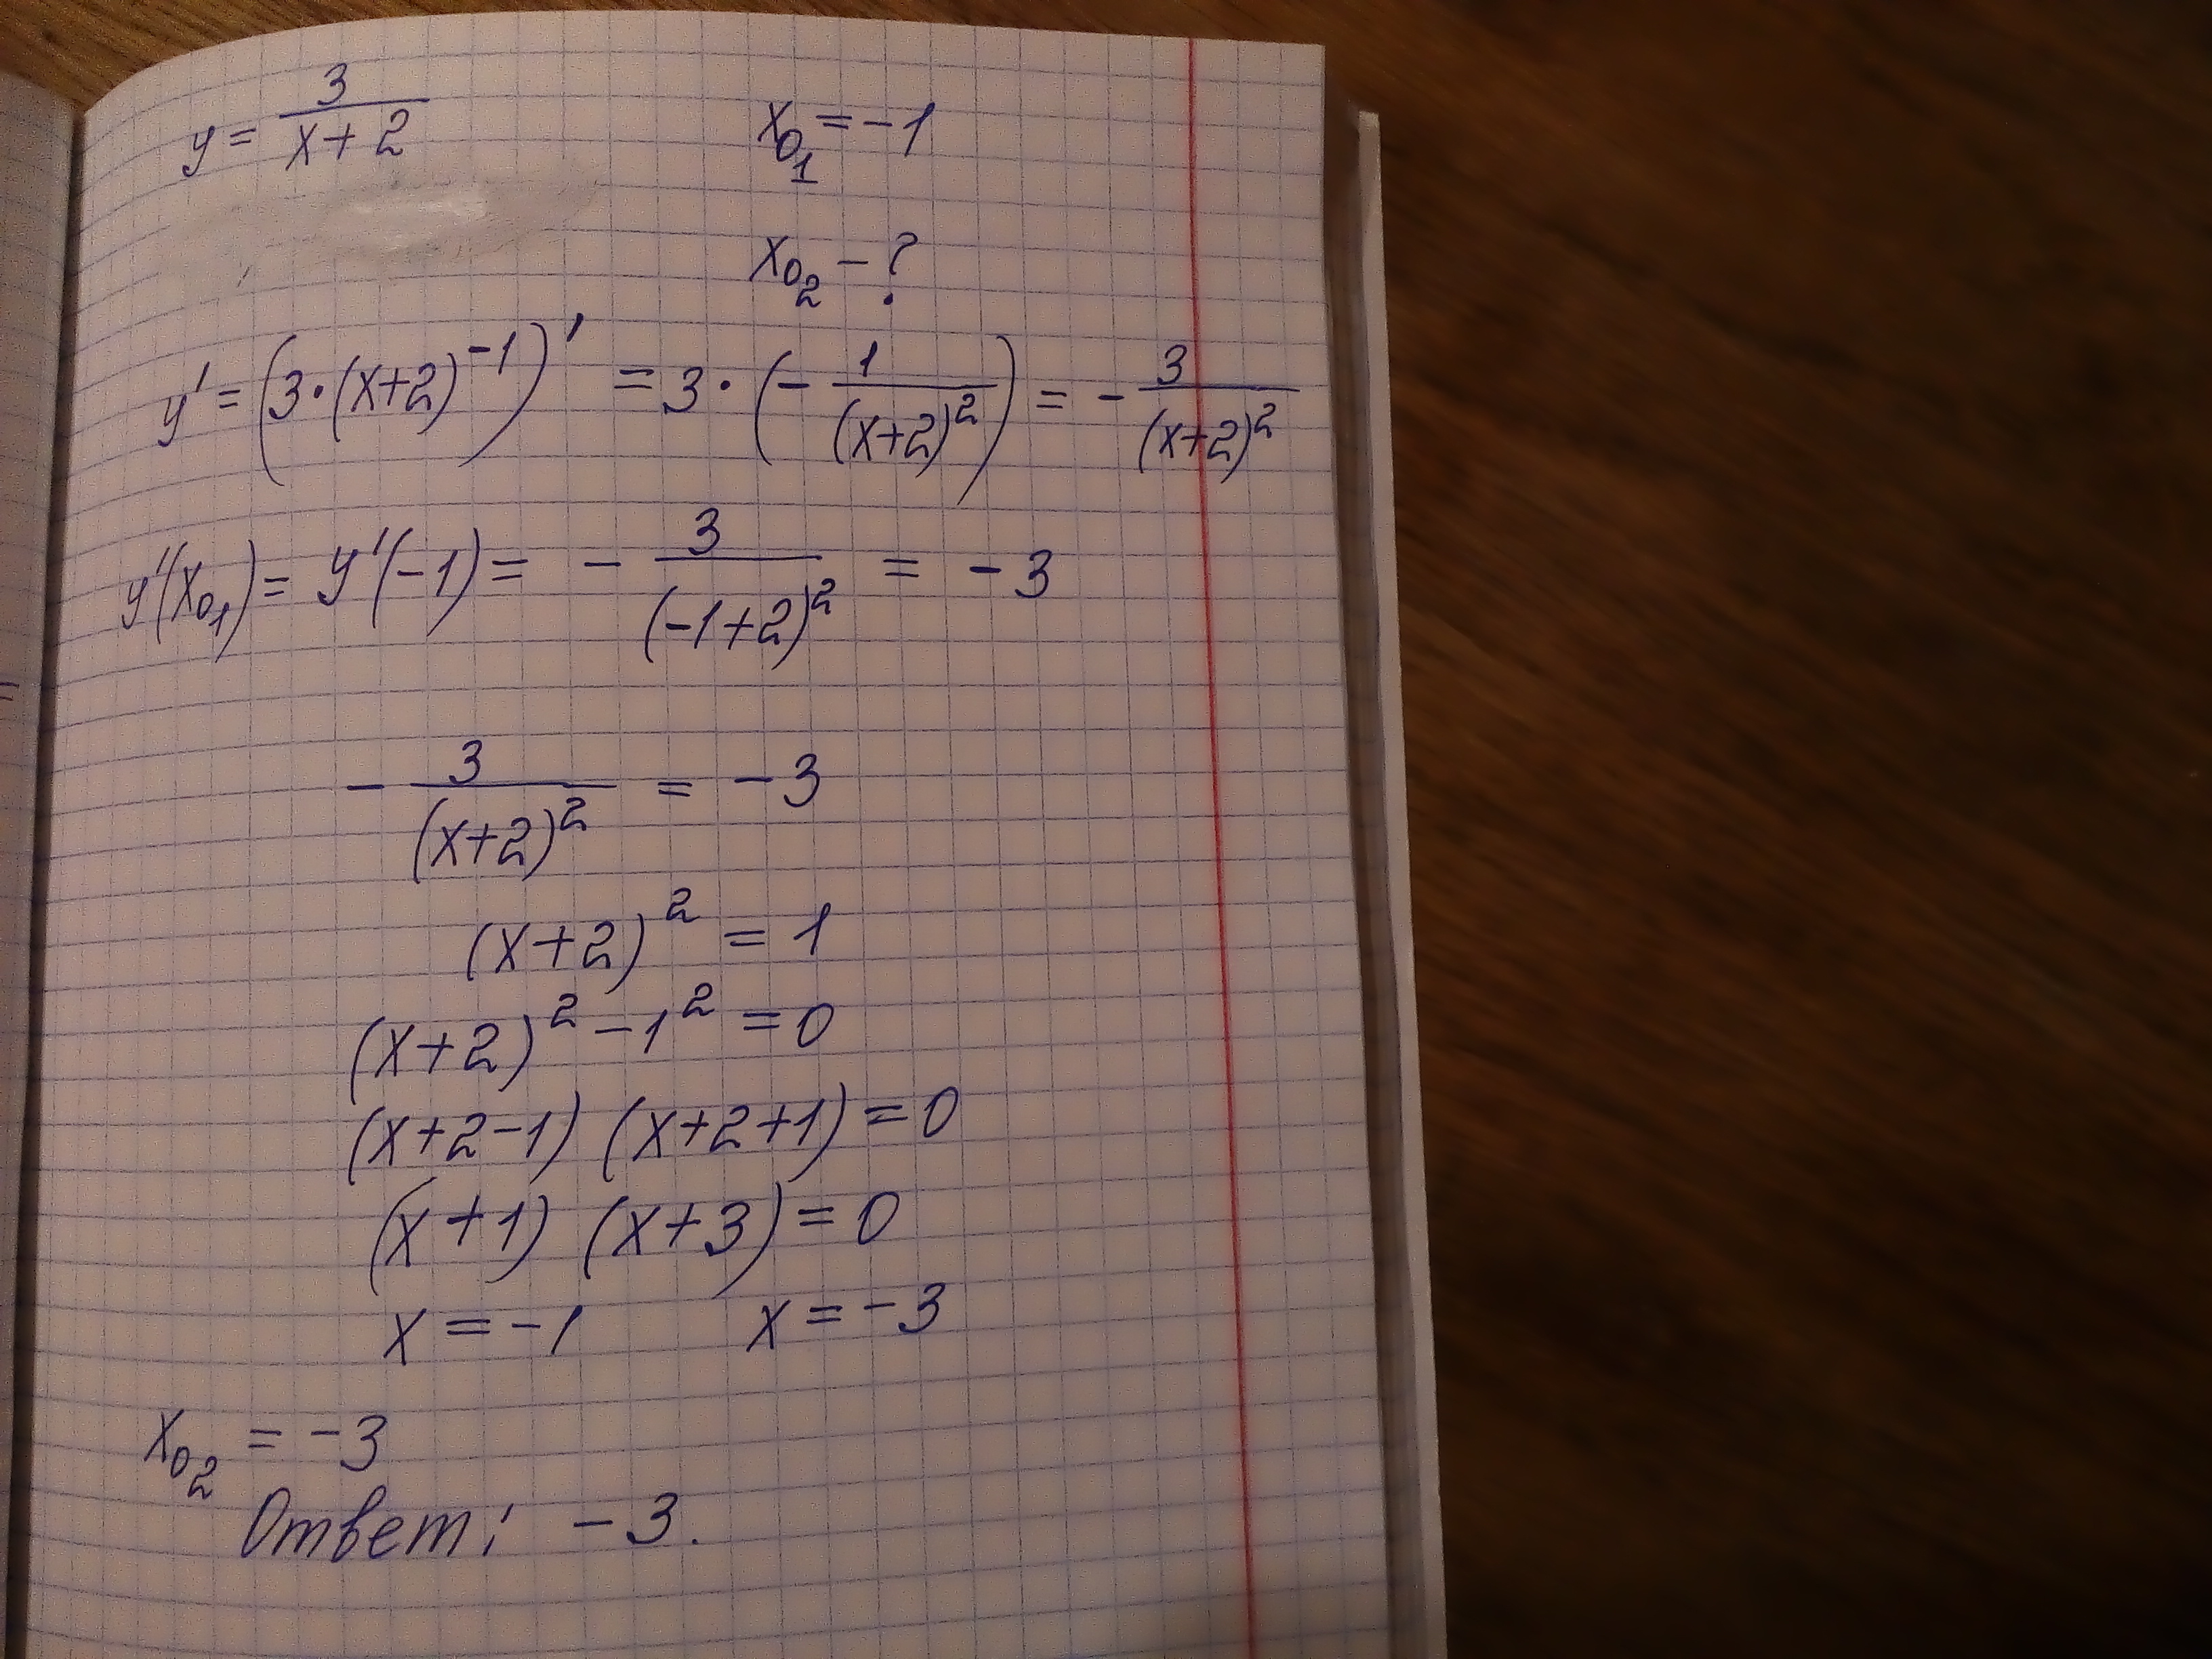 y = 3/(x+2)     x₀₁ = -1
x₀₂ - ?
y' = (3·(x+2)⁻¹)' = 3·(- 1/(x+2)²) = - 3/(x+2)²
y'(x₀₁) = y'(-1) = - 3/(-1+2)² = -3
- 3/(x+2)² = -3
(x+2)² = 1
(x+2)² - 1² = 0
(x+2-1) (x+2+1) = 0
(x+1) (x+3) = 0
x = -1     x = -3
x₀₂ = -3
Ответ: -3.